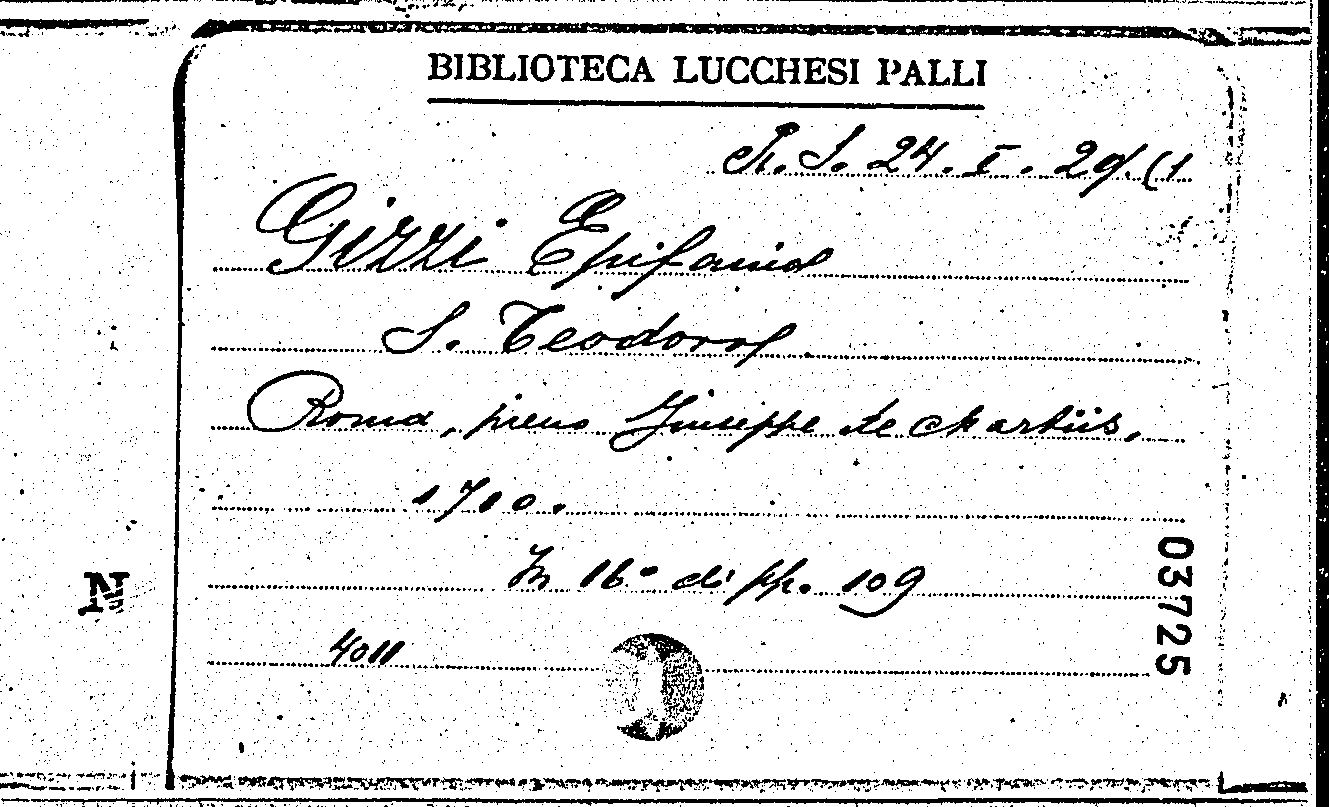 BIBLIOTECA LUCCHESI PALLI
R. S. 24. I. 29. (1
Gizzi Epifanio
S. Teodoro
Roma, presso Giuseppe de Martiis,
1710.
In 16.° di pp. 109
4011
03725